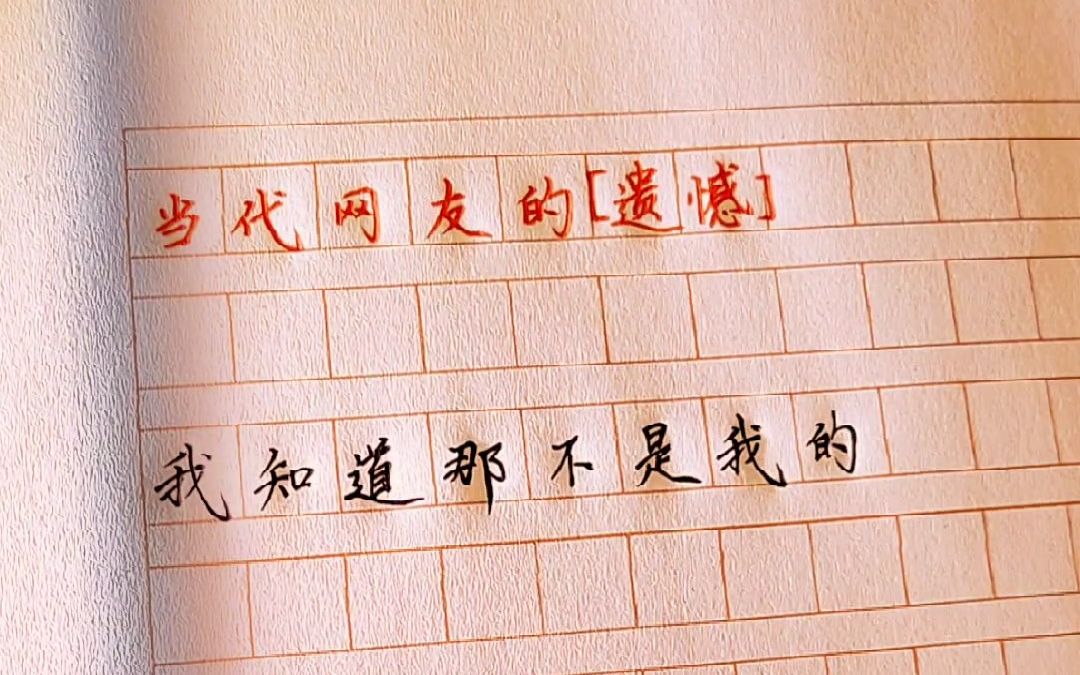 当代网友的[遗憾]
我知道那不是我的